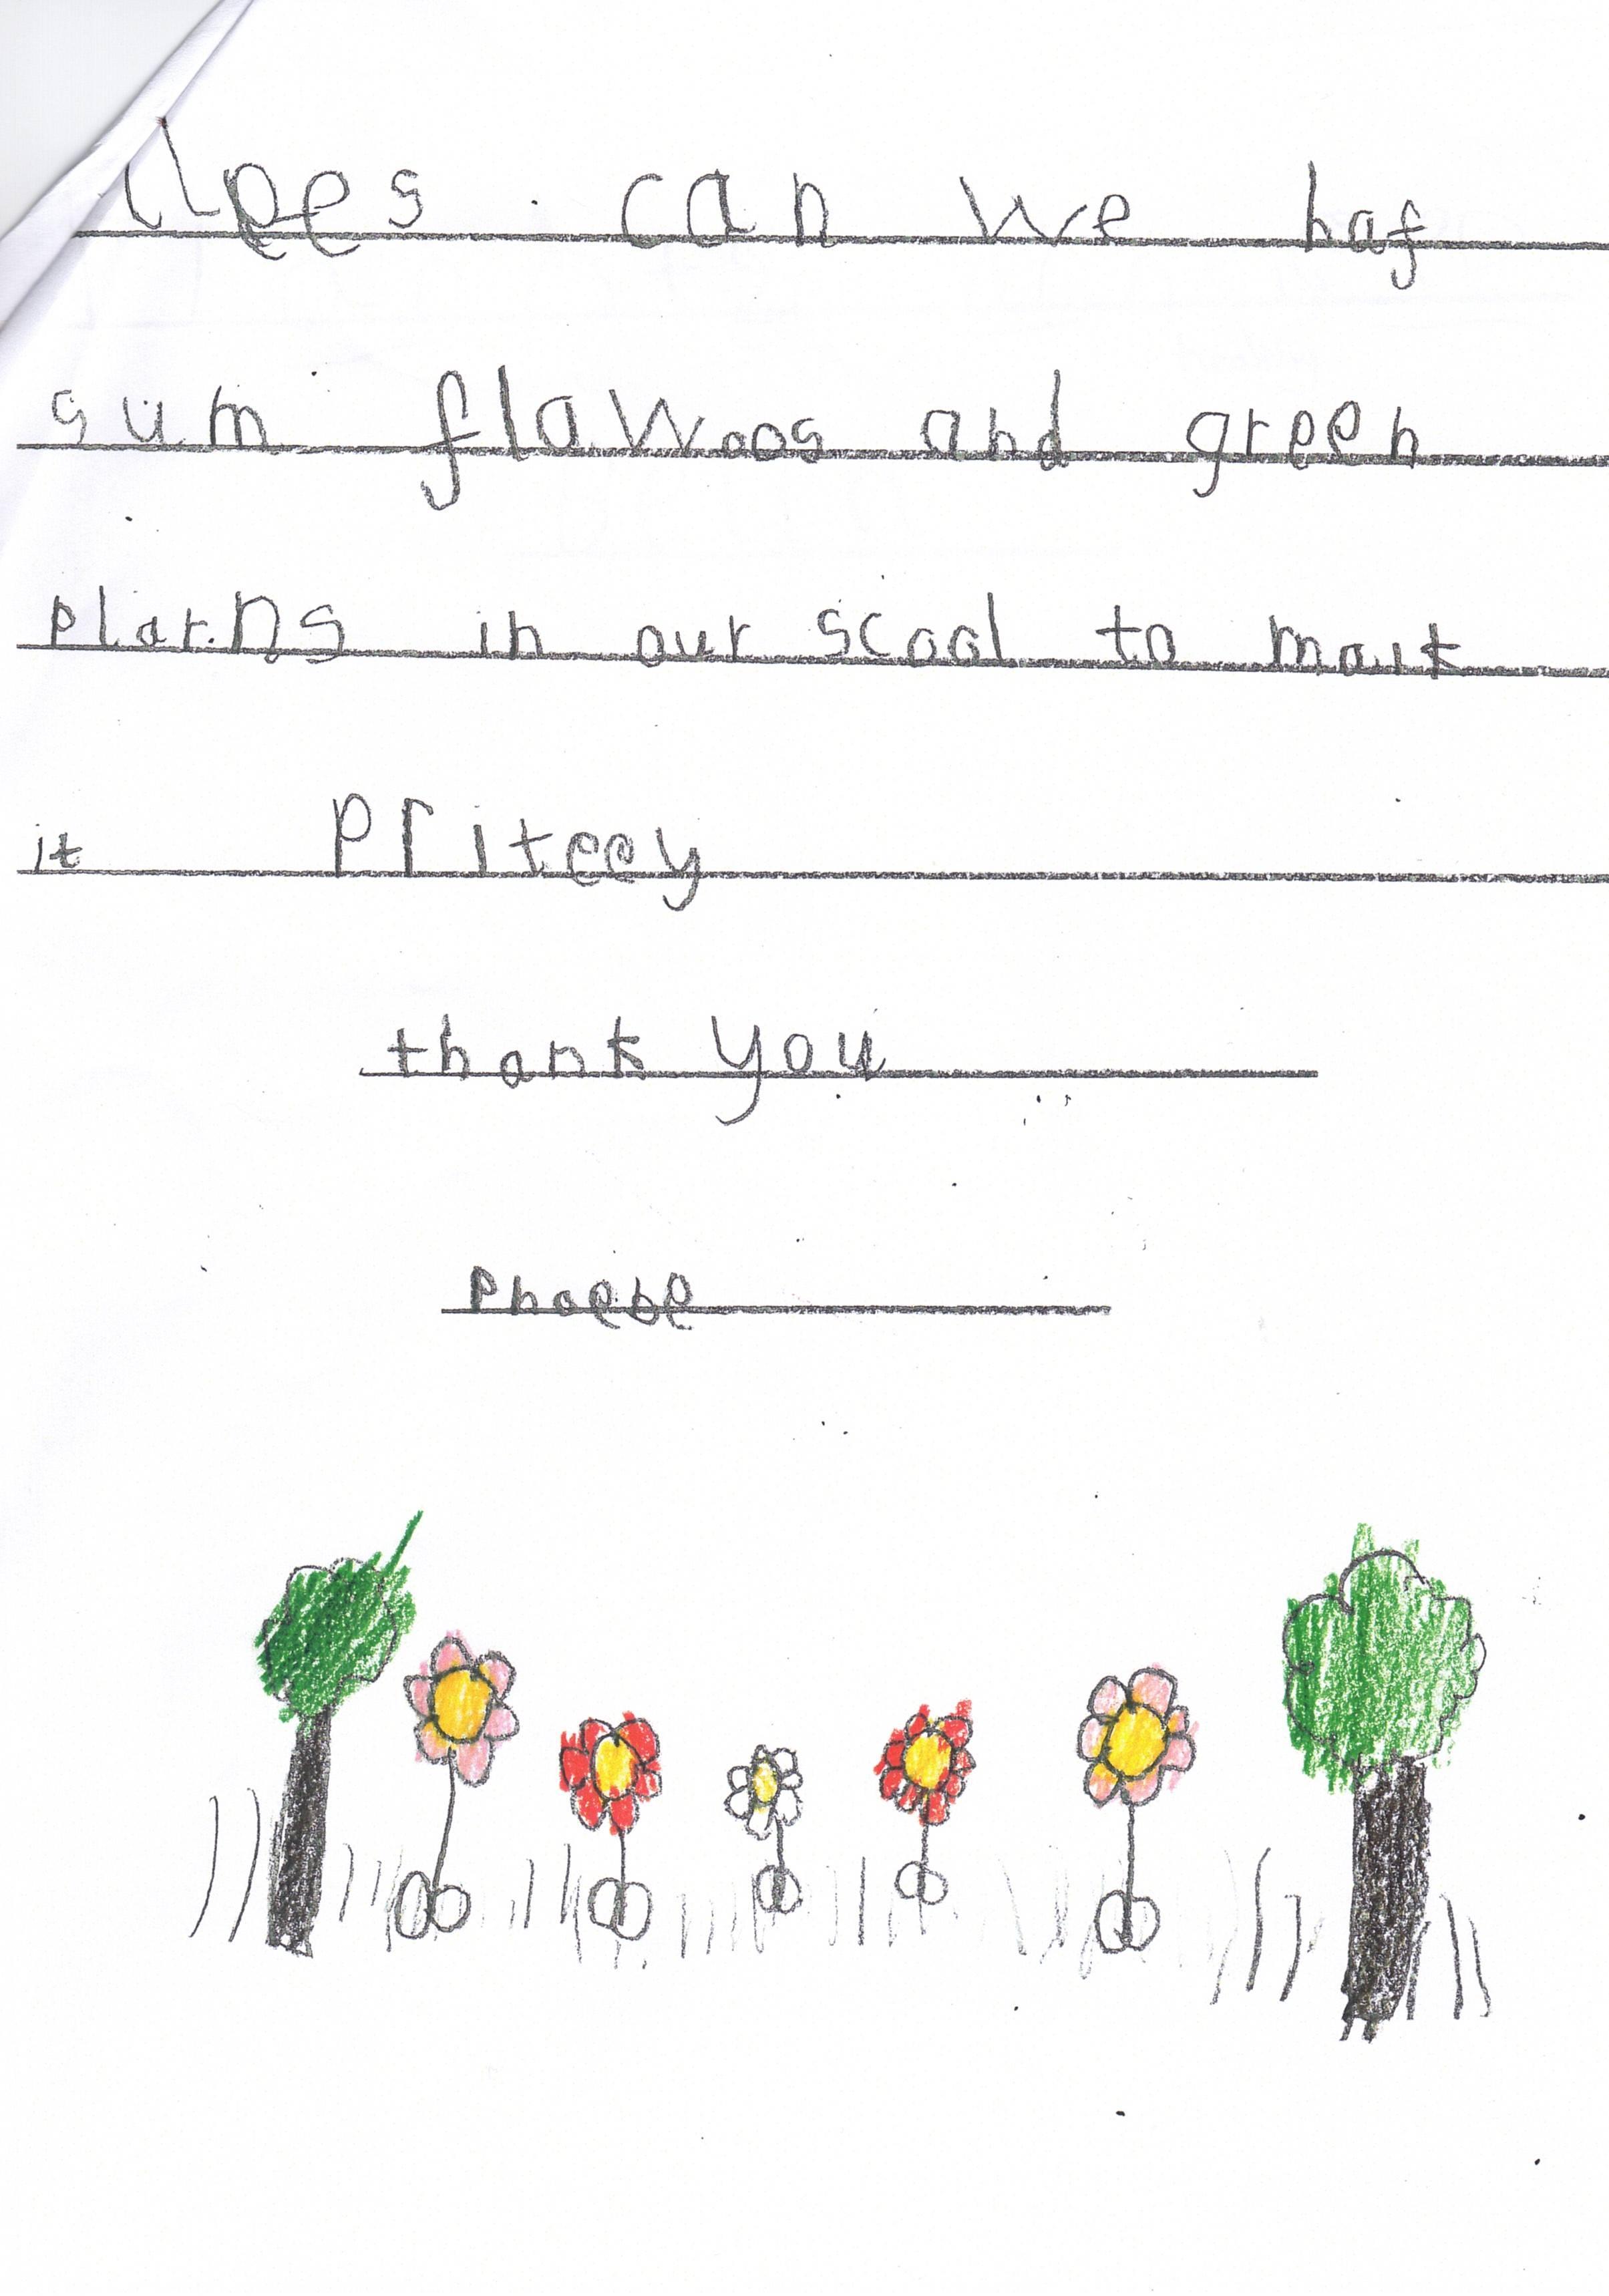 can we haf
sum flawoos and green
plarns in our scool to maik
it priteey
thank you
Phoebe